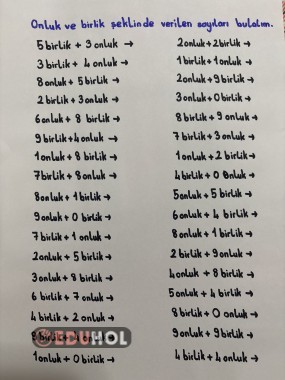 Onluk ve birlik şeklinde verilen sayıları bulalım.
5 birlik + 3 onluk →
3 birlik + 4 onluk →
8 onluk + 5 birlik →
2 birlik + 3 onluk →
6 onluk + 8 birlik →
9 birlik + 4 onluk →
1 onluk + 8 birlik →
7 birlik + 8 onluk →
8 onluk + 1 birlik →
9 onluk + 0 birlik →
7 birlik + 1 onluk →
2 onluk + 5 birlik →
3 onluk + 8 birlik →
6 birlik + 7 onluk →
4 birlik + 2 onluk →
EDUHOL
1 onluk + 0 birlik →
2 onluk + 2 birlik →
1 birlik + 1 onluk →
2 onluk + 9 birlik →
3 onluk + 0 birlik →
8 birlik + 9 onluk →
7 birlik + 3 onluk →
1 onluk + 2 birlik →
4 birlik + 0 onluk →
5 onluk + 5 birlik →
6 onluk + 4 birlik →
8 onluk + 1 birlik →
2 birlik + 9 onluk →
4 onluk + 8 birlik →
5 onluk + 4 birlik →
8 birlik + 0 onluk →
9 onluk + 9 birlik →
4 birlik + 4 onluk →